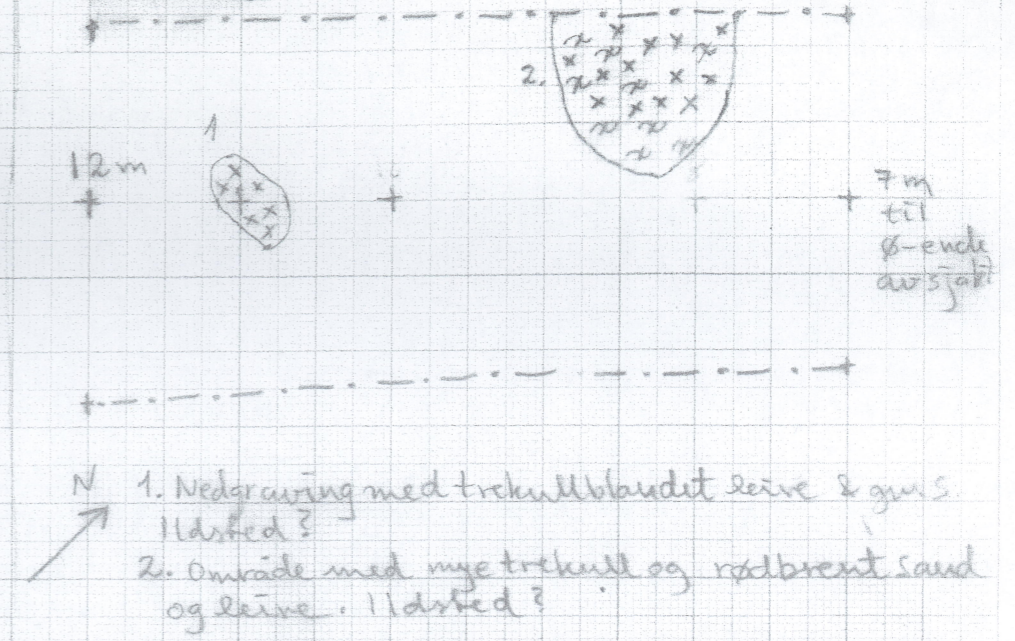 2.
1
12 m
7 m
til
ø-ende
av sjakt
N
1. Nedgraving med trekullblandet leire & grus.
Ildsted?
2. Område med mye trekull og rødbrent sand
og leire. Ildsted?